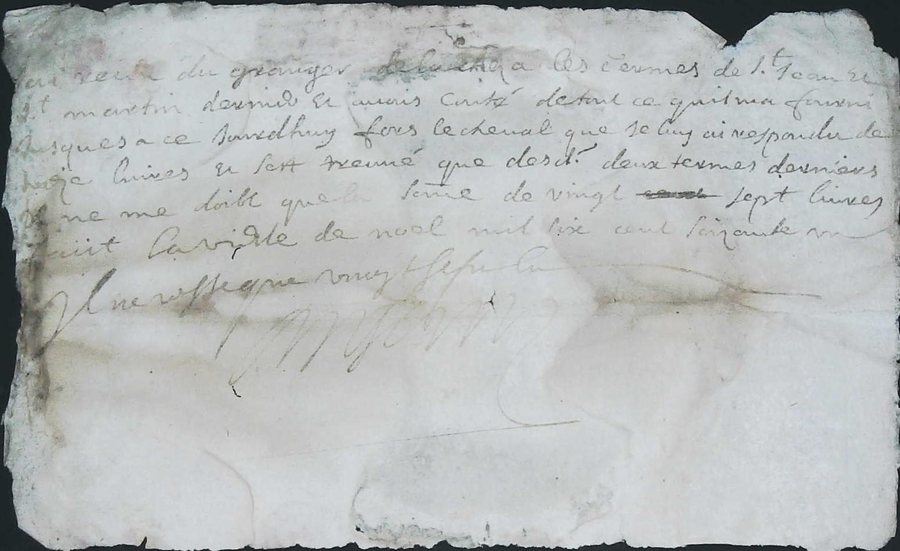 du granger les termes de St Jean Et
St martin dernier Et avois conté de tout ce quil ma fourni
jusques a ce Jourdhuy fors le cheval que Je luy ai respondu de
livres Et sest treuvé que desd. deux termes derniers
il ne me doibt que la some de vingt sept livres
faict la vigille de noel mil six cent soixante un
Il ne reste que vingt sept